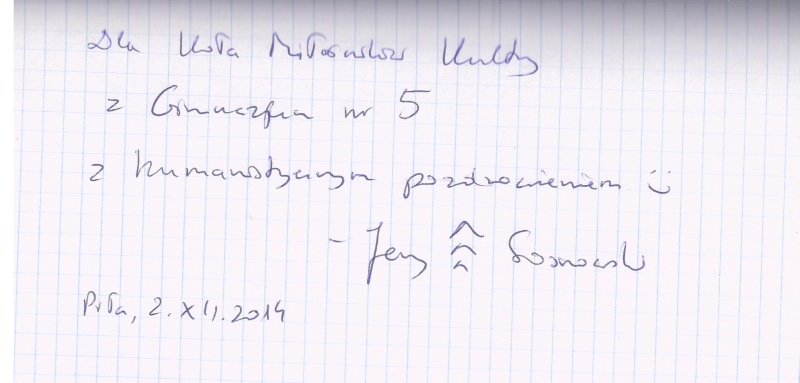 Dla Koła Miłośników Kultury
z Gimnazjum nr 5
z humanistycznym pozdrowieniem :)
- Jerzy Sosnowski
Piła, 2.XII.2014